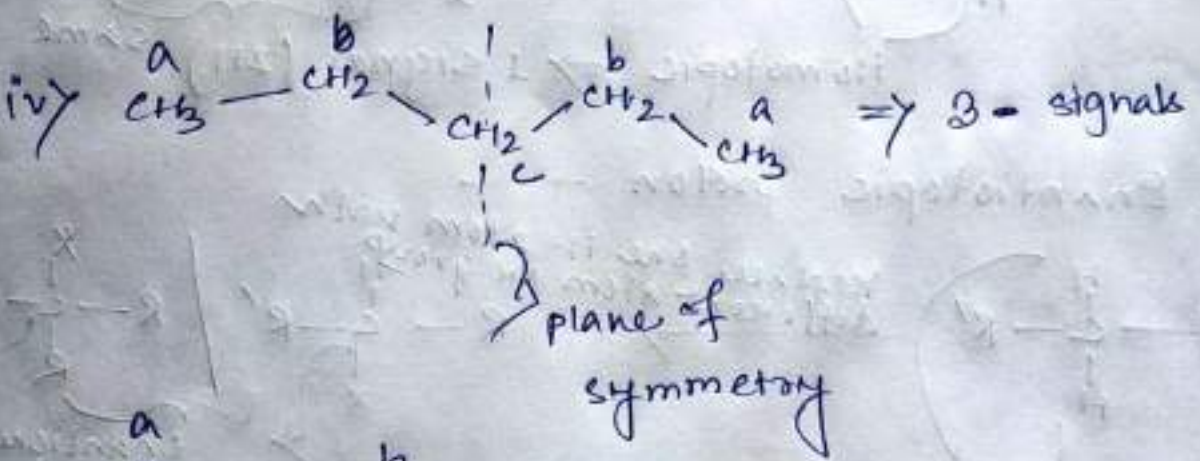 iv) a CH3 — b CH2 — CH2 c — b CH2 — a CH3 => 3 - signals
plane of
symmetry
a
b